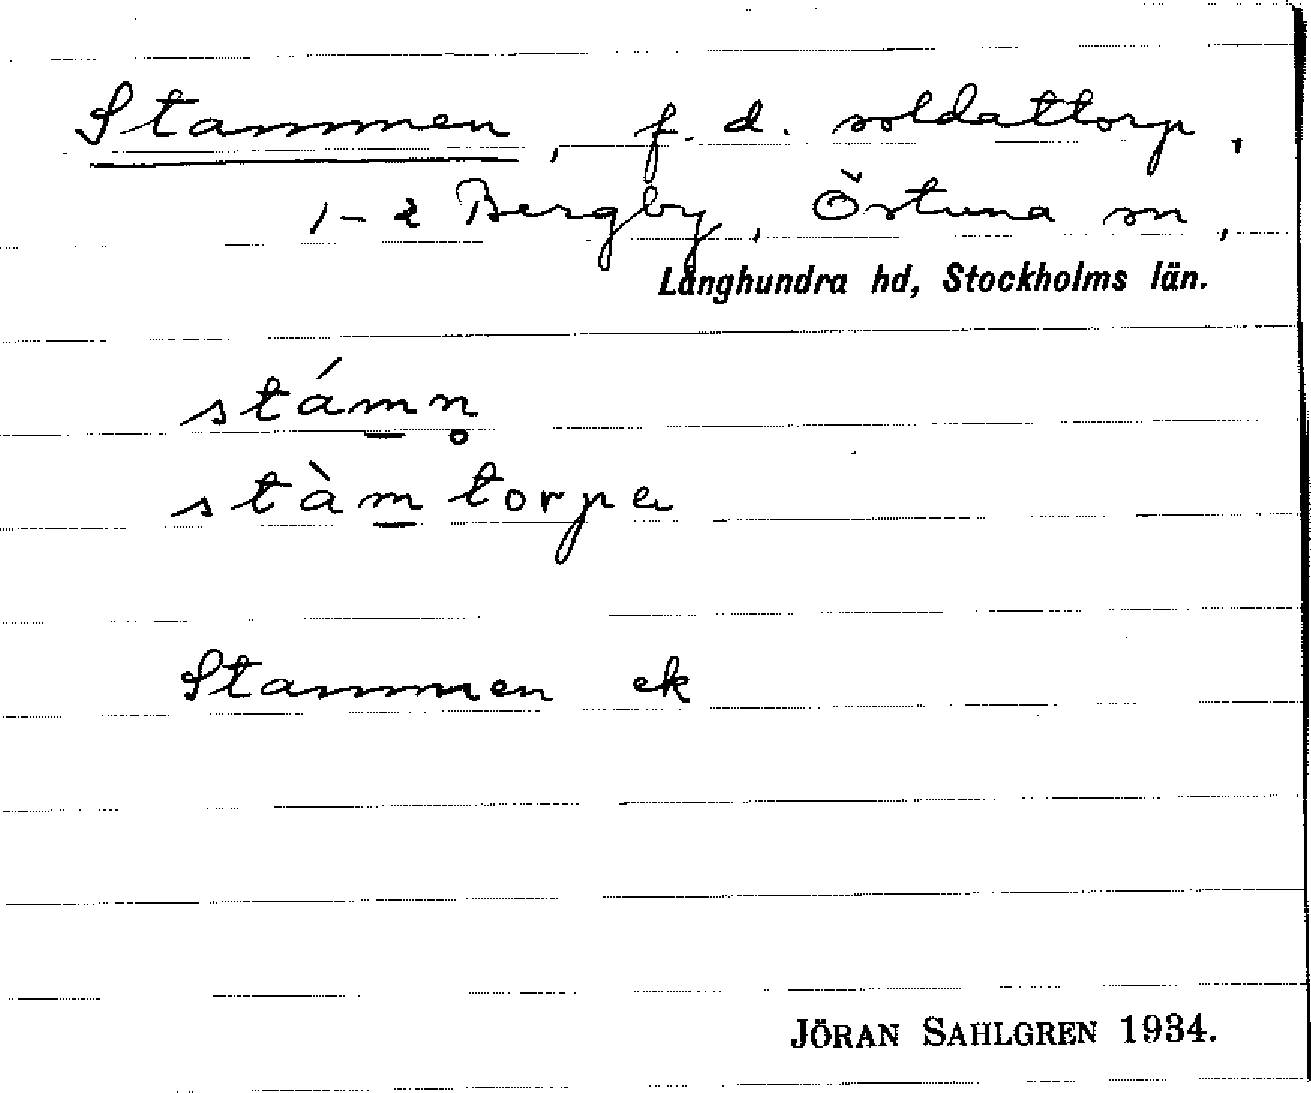 Stammen, f. d. soldattorp,
1–2 Bergby, Östuna sn,
Långhundra hd, Stockholms län.
stám̲n̥
stàm̲torpe
Stammen ek
JÖRAN SAHLGREN 1934.